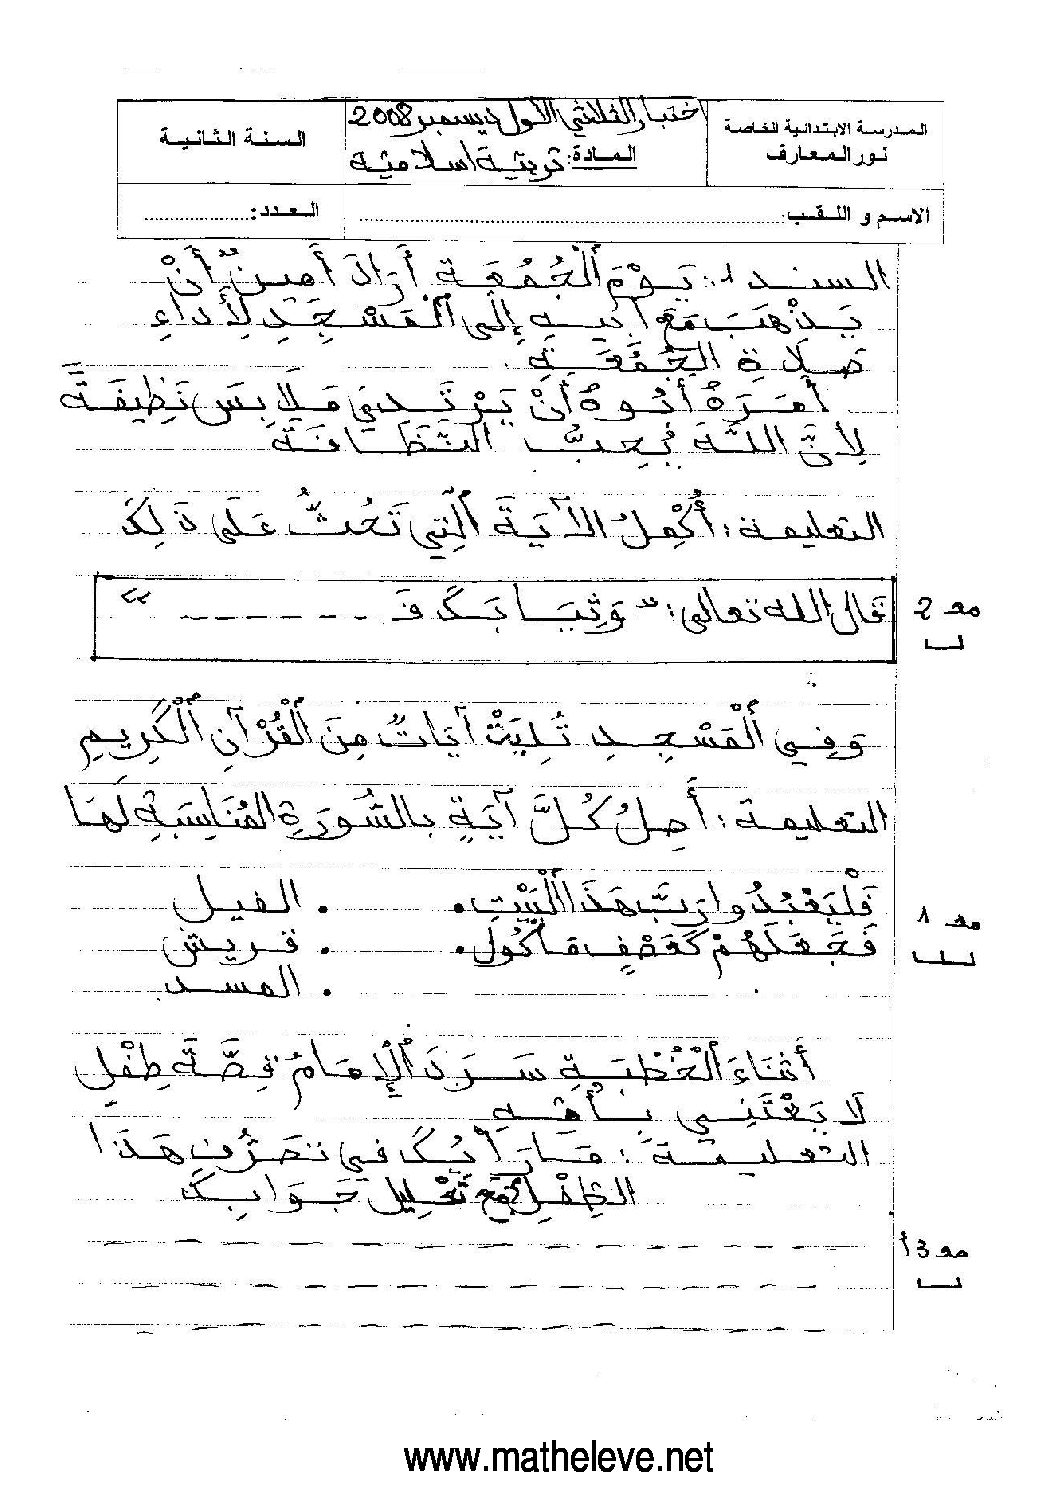 المدرسة الابتدائية الخاصة
نور المعارف
اختبار الثلاثي الأول ديسمبر 2008
المادة: تربية اسلامية
السنة الثانية
الاسم و اللقب:
العدد:
السند 1: يَوْمَ اَلْجُمُعَةِ أَرَادَ أَمِينٌ أَنْ
يَذْهَبَ مَعَ أَبِيهِ إِلَى اَلْمَسْجِدِ لِأَدَاءِ
صَلَاةِ الجُمُعَةِ.
أَمَرَهُ أَبُوهُ أَنْ يَرْتَدِيَ مَلَابِسَ نَظِيفَةً
لِأَنَّ اللَّهَ يُحِبُّ النَّظَافَةَ
التعليمة: أُكْمِلُ الآيَةَ اَلَّتِي تَحُثُّ عَلَى ذَلِكَ
قال الله تعالى: "وَثِيَابَكَ فَ - - - - - - "
مع 2
وَفِي اَلْمَسْجِدِ تُلِيَتْ آيَاتٌ مِنَ اَلْقُرْآنِ اَلْكَرِيمِ
التعليمة: أَصِلُ كُلَّ آيَةٍ بِالسُّورَةِ المُنَاسِبَةِ لَهَا
فَلْيَعْبُدُوا رَبَّ هَذَا اَلْبَيْتِ. . الفيل
مع 1
فَجَعَلَهُمْ كَعَصْفٍ مَأْكُول. . قريش
. المسد
أَثْنَاءَ اَلْخُطْبَةِ سَرَدَ اَلْإِمَامُ قِصَّةَ طِفْلٍ
لَا يَعْتَنِي بِأُمِّهِ
التعليمة: مَا رَأْيُكَ فِي تَصَرُّفِ هَذَا
الطِّفْلِ مَعَ تَعْلِيلِ جَوَابِكَ
مع 3 أ
www.matheleve.net